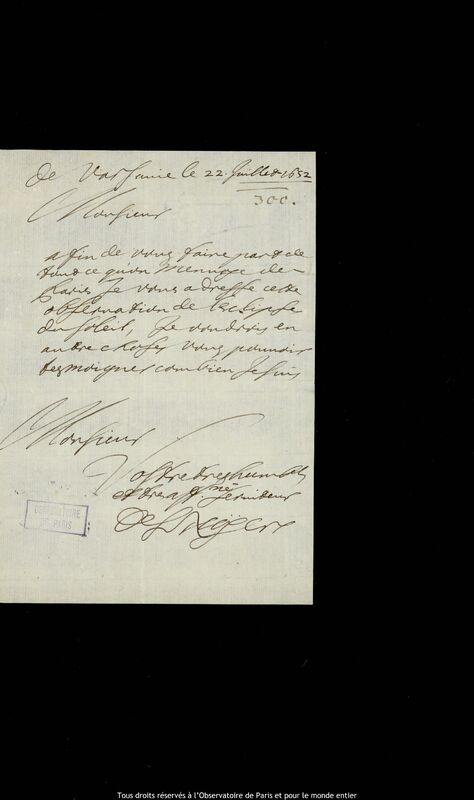 De Varsavie le 22. Juillet 1652
300.
Monsieur
afin de vous faire part de
tout ce qu'on m'envoye de
Paris Je vous adresse cette
observation de l'Eclipse
du soleil, Je voudrois en
autre choses vous pouvoir
tesmoigner combien Je suis
Monsieur
Vostre tres humble
et tres aff.né serviteur
OBSERVATOIRE
DE PARIS
Tous droits réservés à l'Observatoire de Paris et pour le monde entier